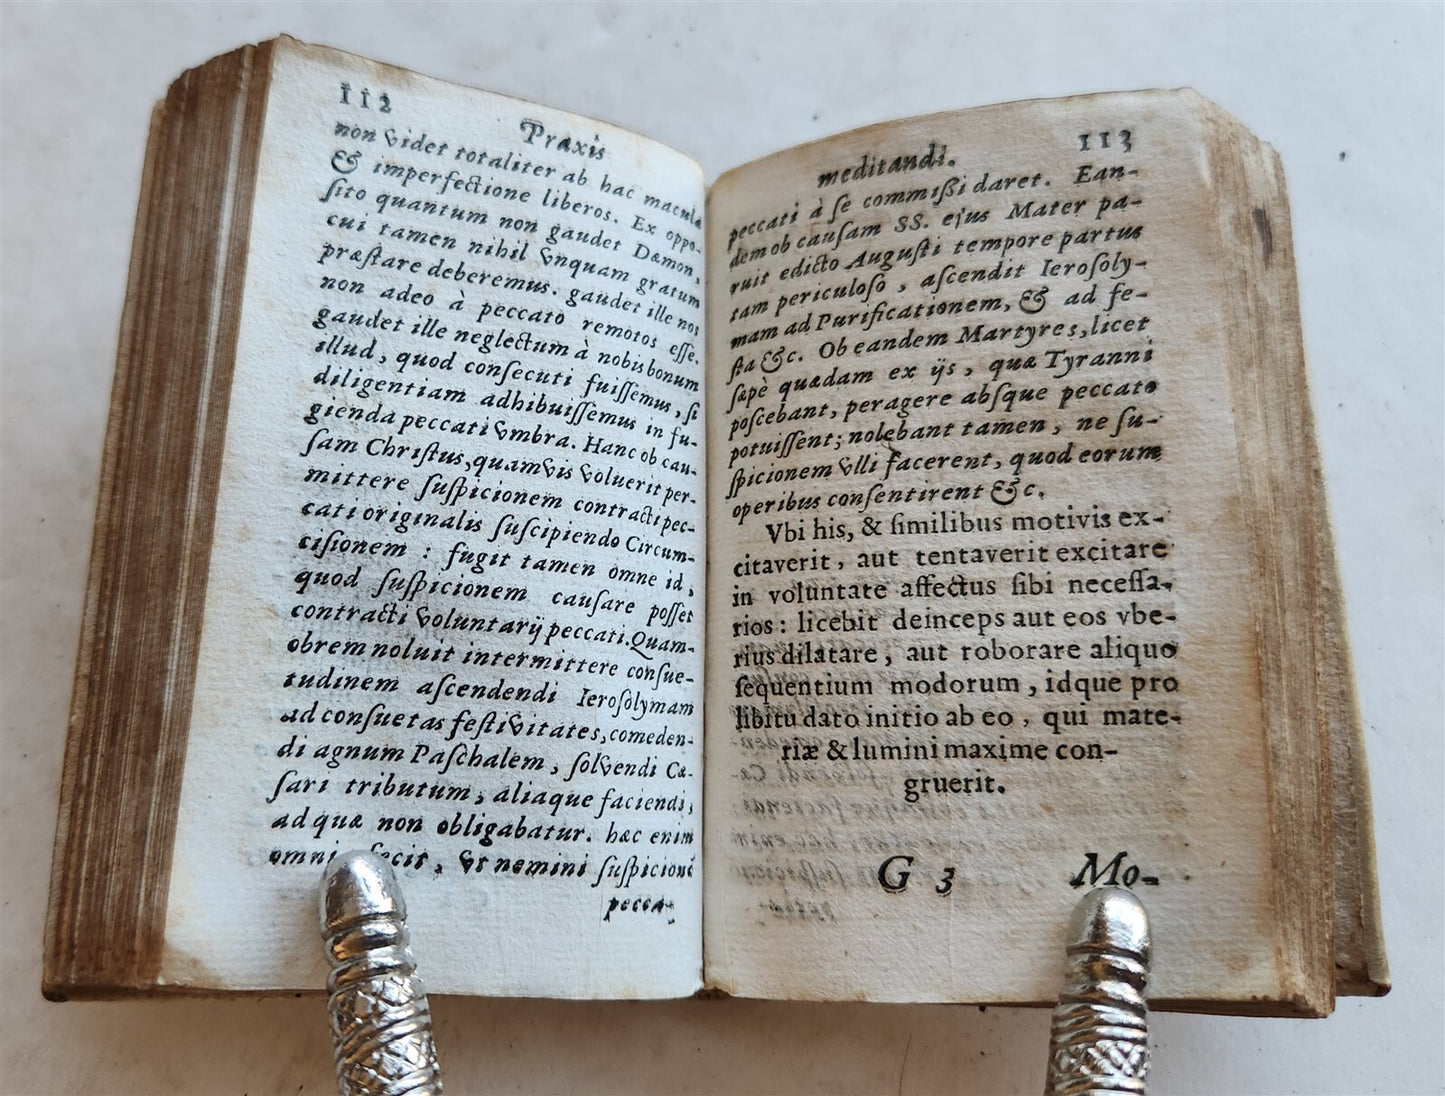 112
Praxis
non videt totaliter ab hac maculâ
& imperfectione liberos. Ex oppo-
ſito quantum non gaudet Dæmon,
cui tamen nihil vnquam gratum
præſtare deberemus. gaudet ille nos
non adeo à peccato remotos eſſe.
gaudet ille neglectum à nobis bonum
illud, quod conſecuti fuiſſemus, ſi
diligentiam adhibuiſſemus in fu-
gienda peccati vmbra. Hanc ob cau-
ſam Chriſtus, quamvis voluerit per-
mittere ſuſpicionem contracti pec-
cati originalis ſuſcipiendo Circum-
ciſionem : fugit tamen omne id,
quod ſuſpicionem cauſare poſſet
contracti voluntarij peccati. Quam-
obrem noluit intermittere conſue-
tudinem aſcendendi Ieroſolymam
ad conſuetas feſtivitates, comeden-
di agnum Paſchalem, ſolvendi Cæ-
ſari tributum, aliaque faciendi,
ad quæ non obligabatur. hæc enim
fecit, vt nemini ſuſpicionē
pecca-
113
meditandi.
peccati à ſe commiſſi daret. Ean-
dem ob cauſam SS. ejus Mater pa-
ruit edicto Auguſti tempore partus
tam periculoſo, aſcendit Ieroſoly-
mam ad Purificationem, & ad fe-
ſta &c. Ob eandem Martyres, licet
ſæpè quædam ex ijs, quæ Tyranni
poſcebant, peragere abſque peccato
potuiſſent; nolebant tamen, ne ſu-
ſpicionem vlli facerent, quod eorum
operibus conſentirent &c.
Vbi his, & ſimilibus motivis ex-
citaverit, aut tentaverit excitare
in voluntate affectus ſibi neceſſa-
rios : licebit deinceps aut eos vbe-
rius dilatare, aut roborare aliquo
ſequentium modorum, idque pro
libitu dato initio ab eo, qui mate-
riæ & lumini maxime con-
gruerit.
G 3 Mo-